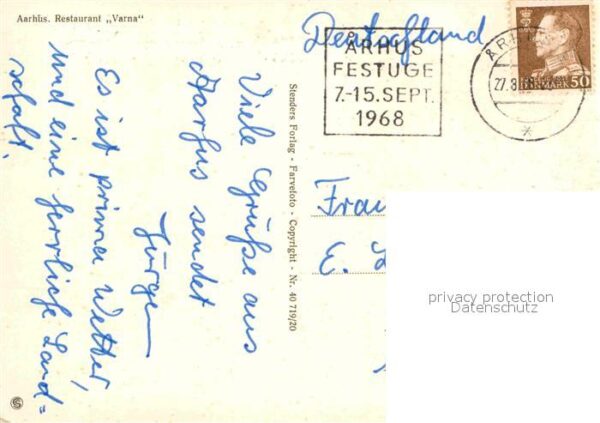 Aarhus. Restaurant „Varna“
Viele Grüße aus
Aarhus sendet
Jürgen
Es ist prima Wetter,
und eine herrliche Land=
schaft.
Stenders Forlag - Farvefoto - Copyright - Nr. 40 719/20
Deutschland
ÅRHUS
FESTUGE
7.-15. SEPT.
1968
27.8
DANMARK 50
Frau
E.
privacy protection
Datenschutz